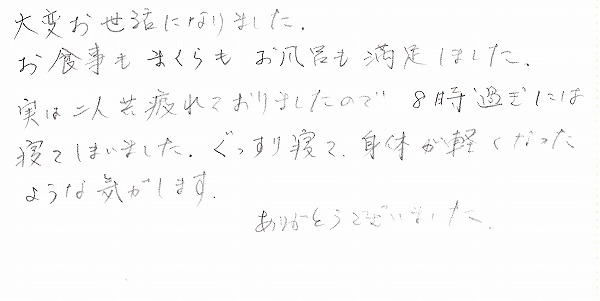 大変お世話になりました.
お食事もまくらもお風呂も満足しました.
実は二人共疲れておりましたので 8時過ぎには
寝てしまいました. ぐっすり寝て、身体が軽くなった
ような気がします.
ありがとうございました.